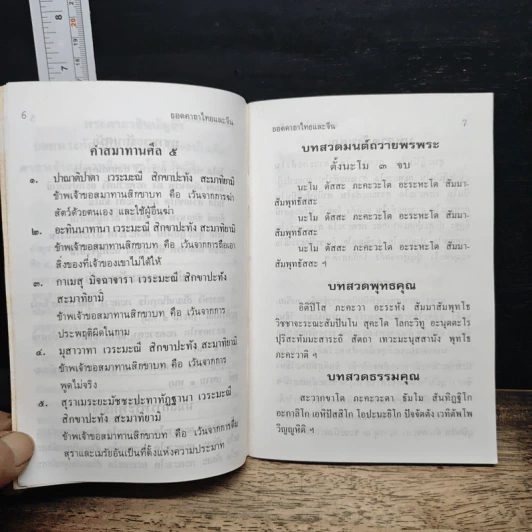 6
ยอดคาถาไทยและจีน
คำสมาทานศีล ๕
๑. ปาณาติปาตา เวระมะณี สิกขาปะทัง สะมาทิยามิ
ข้าพเจ้าขอสมาทานสิกขาบท คือ เว้นจากการฆ่า
สัตว์ด้วยตนเอง และใช้ผู้อื่นฆ่า
๒. อะทินนาทานา เวระมะณี สิกขาปะทัง สะมาทิยามิ
ข้าพเจ้าขอสมาทานสิกขาบท คือ เว้นจากการถือเอา
สิ่งของที่เจ้าของเขาไม่ได้ให้
๓. กาเมสุ มิจฉาจารา เวระมะณี สิกขาปะทัง
สะมาทิยามิ
ข้าพเจ้าขอสมาทานสิกขาบท คือ เว้นจากการ
ประพฤติผิดในกาม
๔. มุสาวาทา เวระมะณี สิกขาปะทัง สะมาทิยามิ
ข้าพเจ้าขอสมาทานสิกขาบท คือ เว้นจากการ
พูดไม่จริง
๕. สุราเมระยะมัชชะปะมาทัฏฐานา เวระมะณี
สิกขาปะทัง สะมาทิยามิ
ข้าพเจ้าขอสมาทานสิกขาบท คือ เว้นจากการดื่ม
สุราและเมรัยอันเป็นที่ตั้งแห่งความประมาท
ยอดคาถาไทยและจีน
7
บทสวดมนต์ถวายพรพระ
ตั้งนะโม ๓ จบ
นะโม ตัสสะ ภะคะวะโต อะระหะโต สัมมา-
สัมพุทธัสสะ
นะโม ตัสสะ ภะคะวะโต อะระหะโต สัมมา-
สัมพุทธัสสะ
นะโม ตัสสะ ภะคะวะโต อะระหะโต สัมมา-
สัมพุทธัสสะ ฯ
บทสวดพุทธคุณ
อิติปิโส ภะคะวา อะระหัง สัมมาสัมพุทโธ
วิชชาจะระณะสัมปันโน สุคะโต โลกะวิทู อะนุตตะโร
ปุริสะทัมมะสาระถิ สัตถา เทวะมะนุสสานัง พุทโธ
ภะคะวาติ ฯ
บทสวดธรรมคุณ
สะวากขาโต ภะคะวะตา ธัมโม สันทิฏฐิโก
อะกาลิโก เอหิปัสสิโก โอปะนะยิโก ปัจจัตตัง เวทิตัพโพ
วิญญูหีติ ฯ